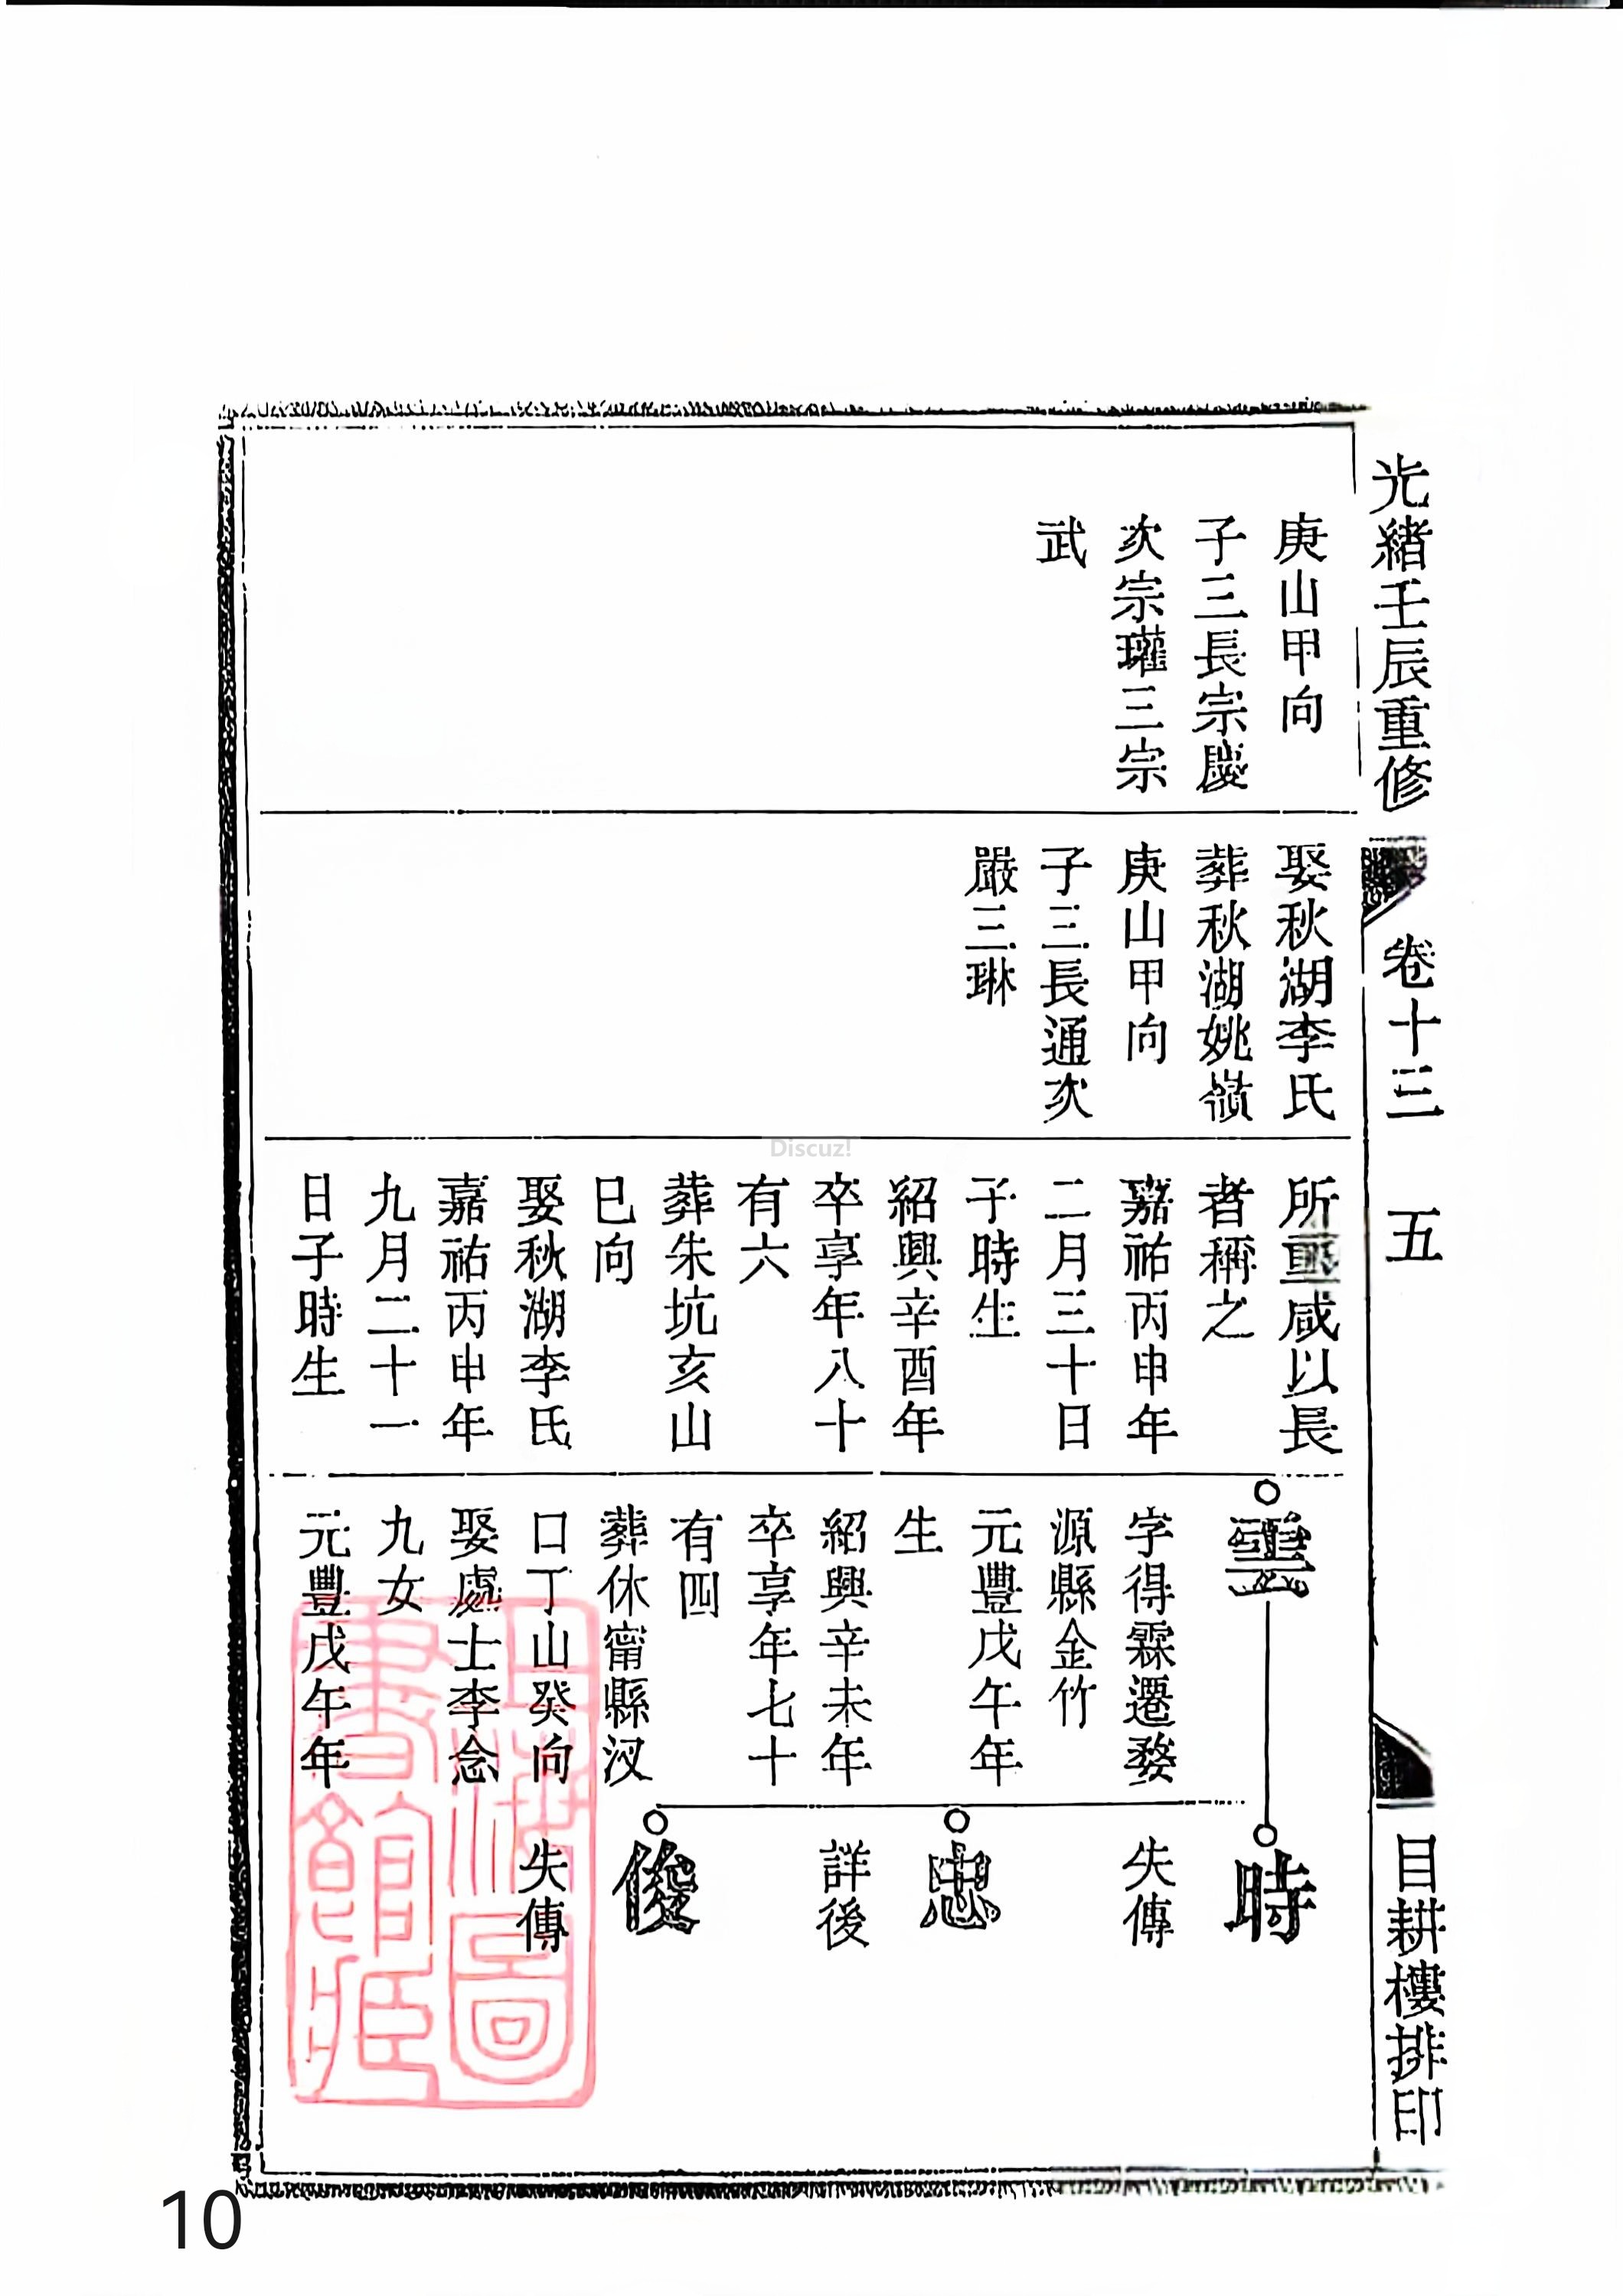 光緒壬辰重修
卷十三
五
目耕樓排印
庚山甲向
子三長宗慶
次宗瓘三宗
武
娶秋湖李氏
葬秋湖姚嶺
庚山甲向
子三長通次
嚴三琳
所重咸以長
者稱之
嘉祐丙申年
二月三十日
子時生
紹興辛酉年
卒享年八十
有六
葬朱坑亥山
巳向
娶秋湖李氏
嘉祐丙申年
九月二十一
日子時生
字得霖遷婺
源縣金竹
元豐戊午年
生
紹興辛未年
卒享年七十
有四
葬休甯縣汊
口丁山癸向
娶處士李念
九女
元豐戊午年
時
失傳
忠
詳後
俊
失傳
上海圖
書館藏
Discuz!
10